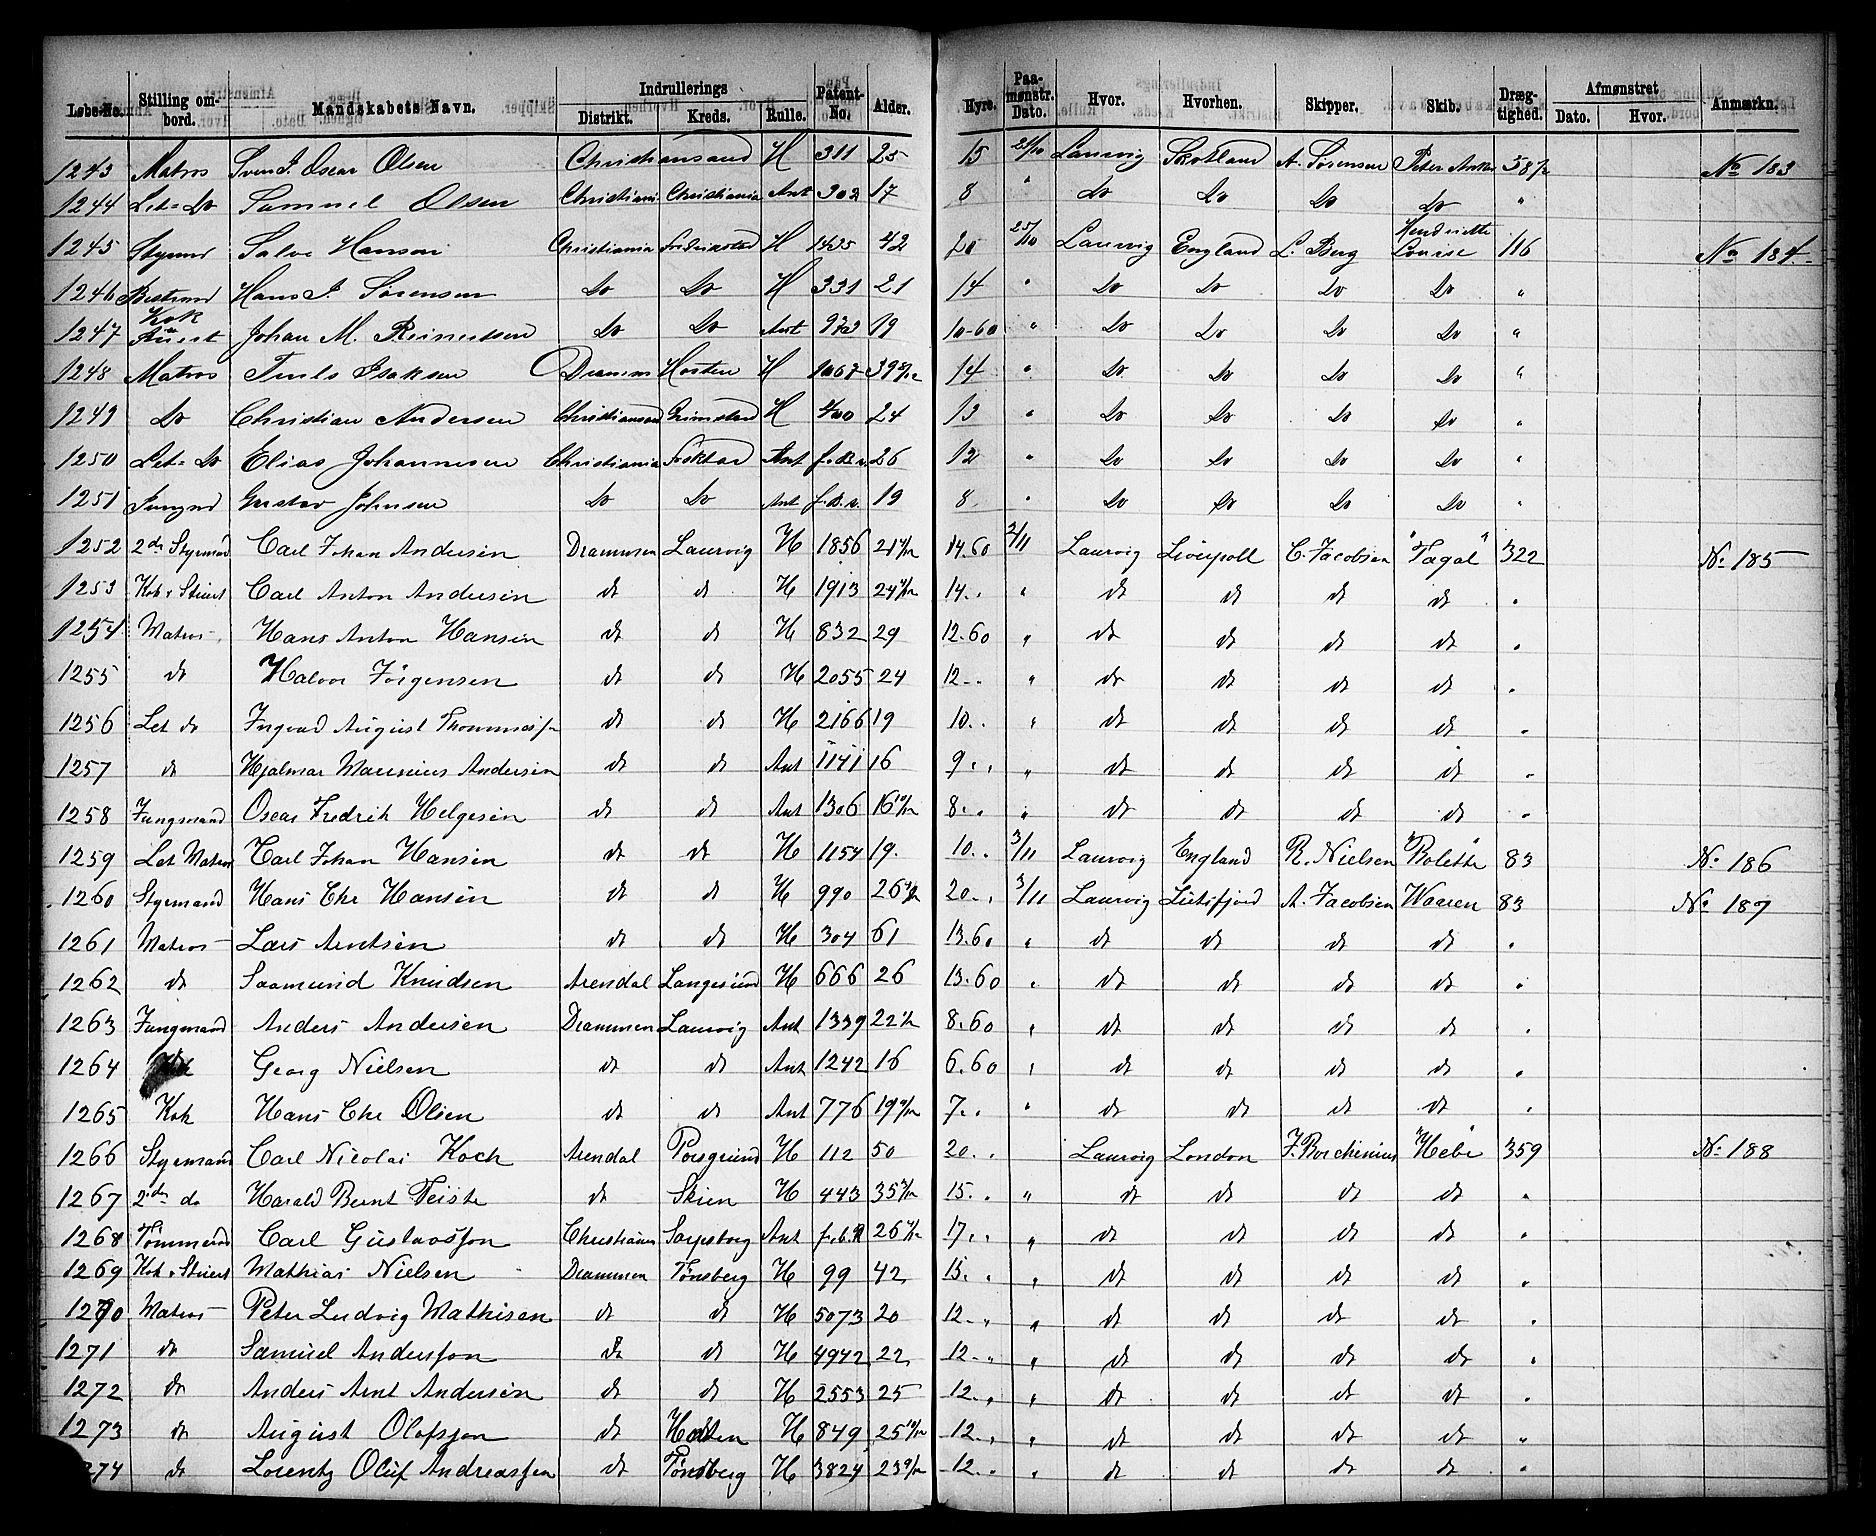 Løbe-No. | Stilling ombord. | Mandskabets Navn. | Indrullerings Distrikt. | Kreds. | Rulle. | Patent-No. | Alder. | Hyre. | Paamønstr. Dato. | Hvor. | Hvorhen. | Skipper. | Skib. | Drægtighed. | Afmønstret Dato. | Hvor. | Anmærkn.
1243 Matros Oscar Olsen Christiansand H 311 25 15 Laurvig Skotland A. Sørensen Peter No 183
1244 Let- Do Samuel Olsen Christiania Christiania Ant 302 17 8 " Do Do Do Do "
1245 Styrmd Salve Hanson Christiania H 1425 42 20 25/10 Laurvig England L. Berg Hendriette Louise 116 No 184.
1246 Bestmd Hans J. Sørensen Do Do H 331 21 14 " Do Do Do Do "
1247 Kok & Stuert Johan M. Reinertsen Do Do Ant 19 10-60 " Do Do Do Do "
1248 Matros Isaksen Drammen Horten H 1067 39 14 " Do Do Do Do "
1249 Do Christian Andersen Christiansand Grimstad H 400 24 13 " Do Do Do Do "
1250 Let- Do Elias Johannesen Christiania Ant 26 12 " Do Do Do Do "
1251 Jungmd Gustav Johnsen Do Do Ant 19 8 " Do Do Do Do "
1252 2den Styrmand Carl Johan Andersen Drammen Laurvig H 1856 21 14.60 2/11 Laurvig Liverpoll C. Jacobsen "Fagal" 322 No. 185
1253 Kok & Stuert Carl Anton Andersen dt dt H 1913 24 14. " dt dt dt dt "
1254 Matros Hans Anton Hansen dt dt H 832 29 12.60 " dt dt dt dt "
1255 dt Halvor Jörgensen dt dt H 2055 24 12 " dt dt dt dt "
1256 Let do Ingvad August dt dt H 2166 19 10 " dt dt dt dt "
1257 dt Hjalmar Andersen dt dt Ant 1141 16 9 " dt dt dt dt "
1258 Jungmand Oscar Fredrik Helgesen dt dt Ant 1306 16 8 " dt dt dt dt "
1259 Let Matros Carl Johan Hansen dt dt H 1154 19. 10 3/11 Laurvig England R. Nielsen "Rolette" 83 No. 186
1260 Styrmand Hans Chr Hansen dt dt H 990 26 20 3/11 Laurvig A. Jacobsen Waaren 83 No 187
1261 Matros Lars Arntsen dt dt H 304 61 13.60 " dt dt dt dt "
1262 dt Saamund Knudsen Arendal Langesund H 666 26 13.60 " dt dt dt dt "
1263 Jungmand Anders Andersen Drammen Laurvig Ant 1339 22 8.60 " dt dt dt dt "
1264 Georg Nielsen dt dt Ant 1242 16 6.60 " dt dt dt dt "
1265 Kok Hans Chr Olsen dt dt Ant 776 19 7 " dt dt dt dt "
1266 Styrmand Carl Nicolai Koch Arendal Porsgrund H 112 50 20 Laurvig London J. Borchenius "Hebe" 359 No. 188
1267 2den do Harald Bernt Teiste dt Skien H 443 35 15 " dt dt dt dt "
1268 Tömmermd Carl Gustavsson Christiania Sarpsborg Ant 26 17 " dt dt dt dt "
1269 Kok & Stuert Mathias Nielsen Drammen Tönsberg H 99 42 " dt dt dt dt "
1270 Matros Peter Ludvig Mathisen dt dt H 5073 20 12 " dt dt dt dt "
1271 dt Samuel Andersson dt dt H 4942 22 12 " dt dt dt dt "
1272 dt Anders Arnt Andersen dt dt H 2553 25 12 " dt dt dt dt "
1273 dt August Olofsson dt Horten H 849 25 12 " dt dt dt dt "
274 dt Lorentz Oluf Andreassen dt Tönsberg H 3824 23 12 " dt dt dt dt "